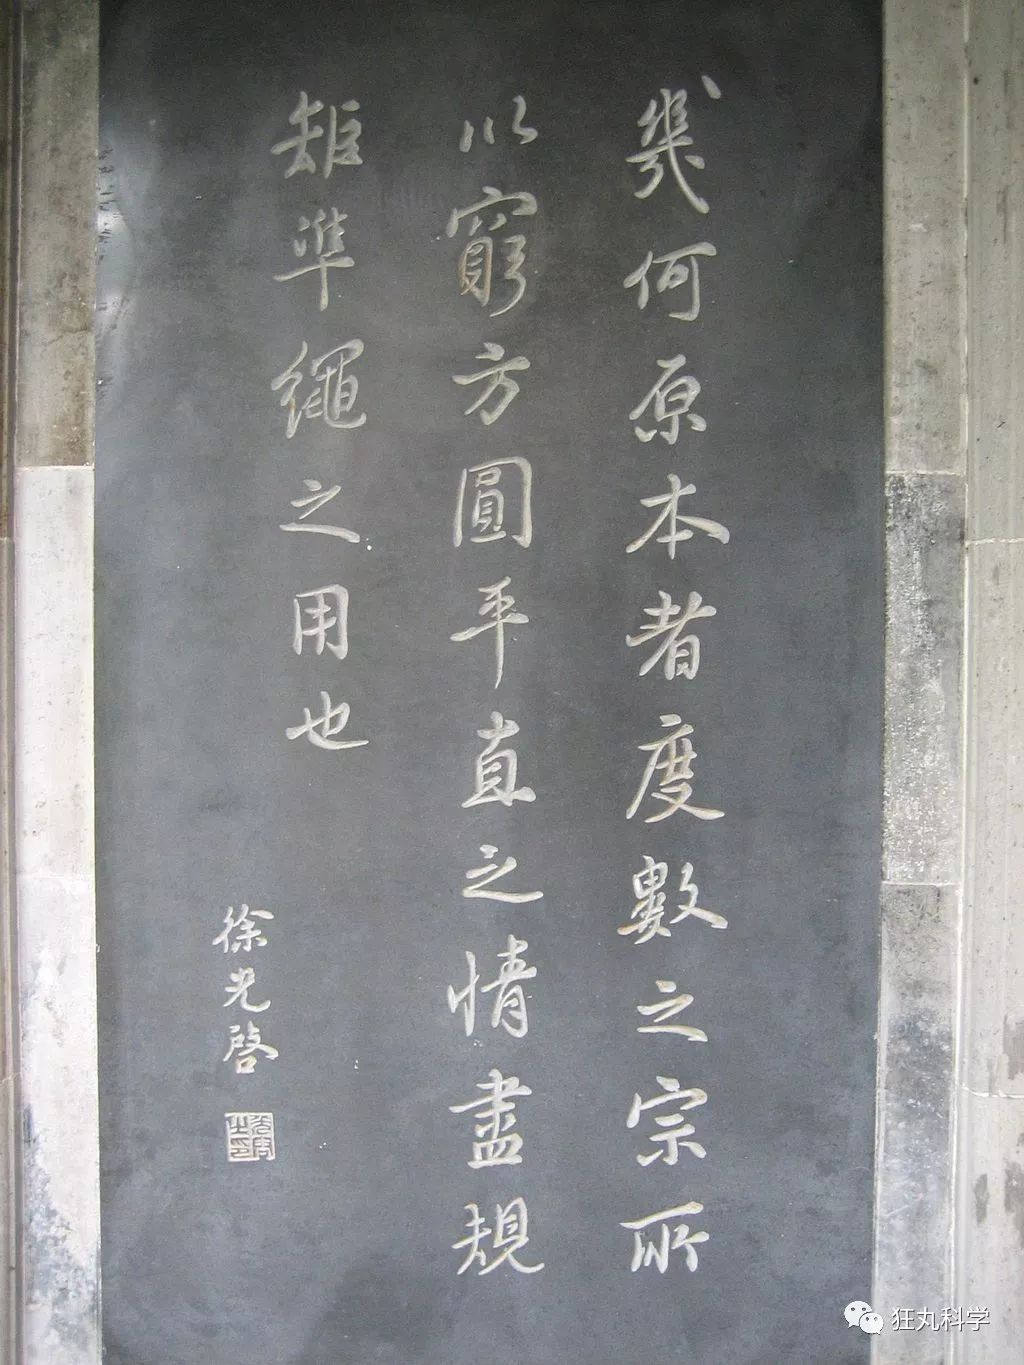 幾何原本者度數之宗所
以窮方圓平直之情盡規
矩準繩之用也
徐光啓
狂丸科学